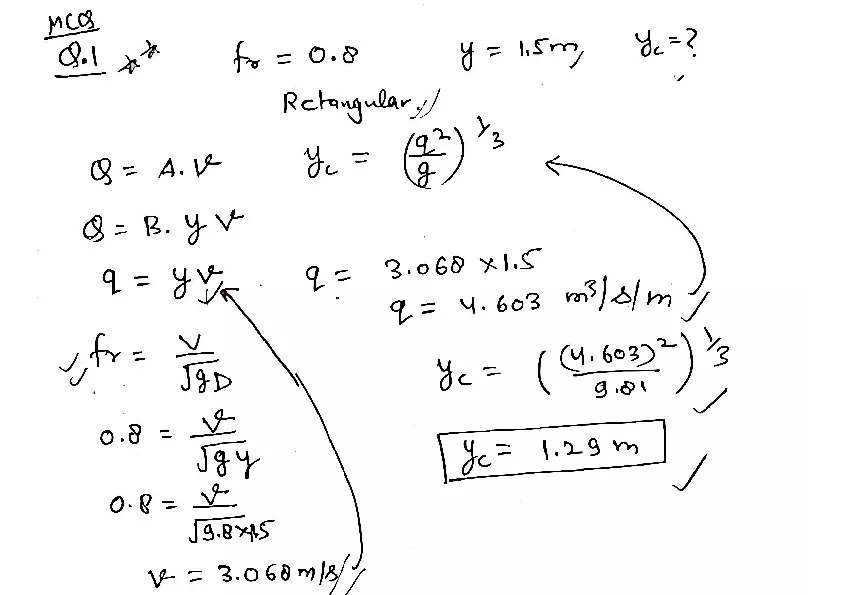 MCQ
Q.1 fr = 0.8 y = 1.5m, yc = ?
Rectangular
Q = A.v yc = (q²/g)^1/3
Q = B.y v
q = yv q = 3.068 × 1.5
q = 4.603 m³/s/m
fr = V/√gD yc = ((4.603)²/9.81)^1/3
0.8 = v/√gy yc = 1.29 m
0.8 = v/√9.8×1.5
v = 3.068 m/s